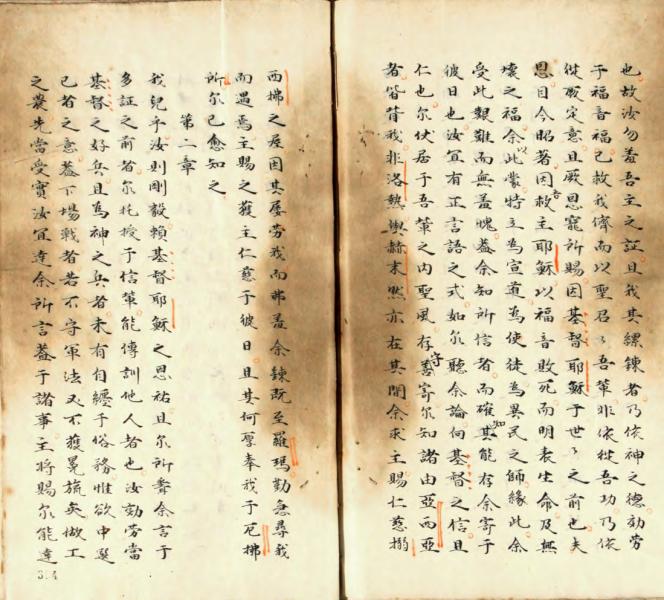 也故汝勿羞吾主之証且我其縲鍊者乃依神之德効劳
于福音福已救我儕而以聖召〻吾輩非依從吾功乃依
從厥定意且厥恩寵所賜因基督耶穌于世〻之前也夫
恩自今昭著因吾救主耶穌以福音敗死而明表生命及無
壞之福余以此蒙特立為宣道為使徒為異民之師緣此余
受此艱難而無羞愧蓋余知所信者而確知其能存余寄于
彼日也汝宜有正言語之式如尔聽余論向基督之信且
仁也尔伏居于吾輩之内聖風存守善寄尔知諸由亞西亞
者皆背我非洛熱輿赫末然亦在其間余求主賜仁慈搦
西拂之屋因其屡劳我而弗羞余鍊既至羅瑪勤急尋我
而遇焉主賜之獲主仁慈于彼日且其何厚奉我于厄拂
所尔已愈知之
第二章
我兒乎汝則剛毅賴基督耶穌之恩祐且尔所聽余言于
多証之前者尔托授于信輩能傳訓他人者也汝効劳當
基督之好兵且為神之兵者未有自纏于俗務惟欲中選
己者之意蓋下場戰者若不守軍法又不獲冕旒矣做工
之農先當受實汝宜達余所言蓋于諸事主將賜尔能達